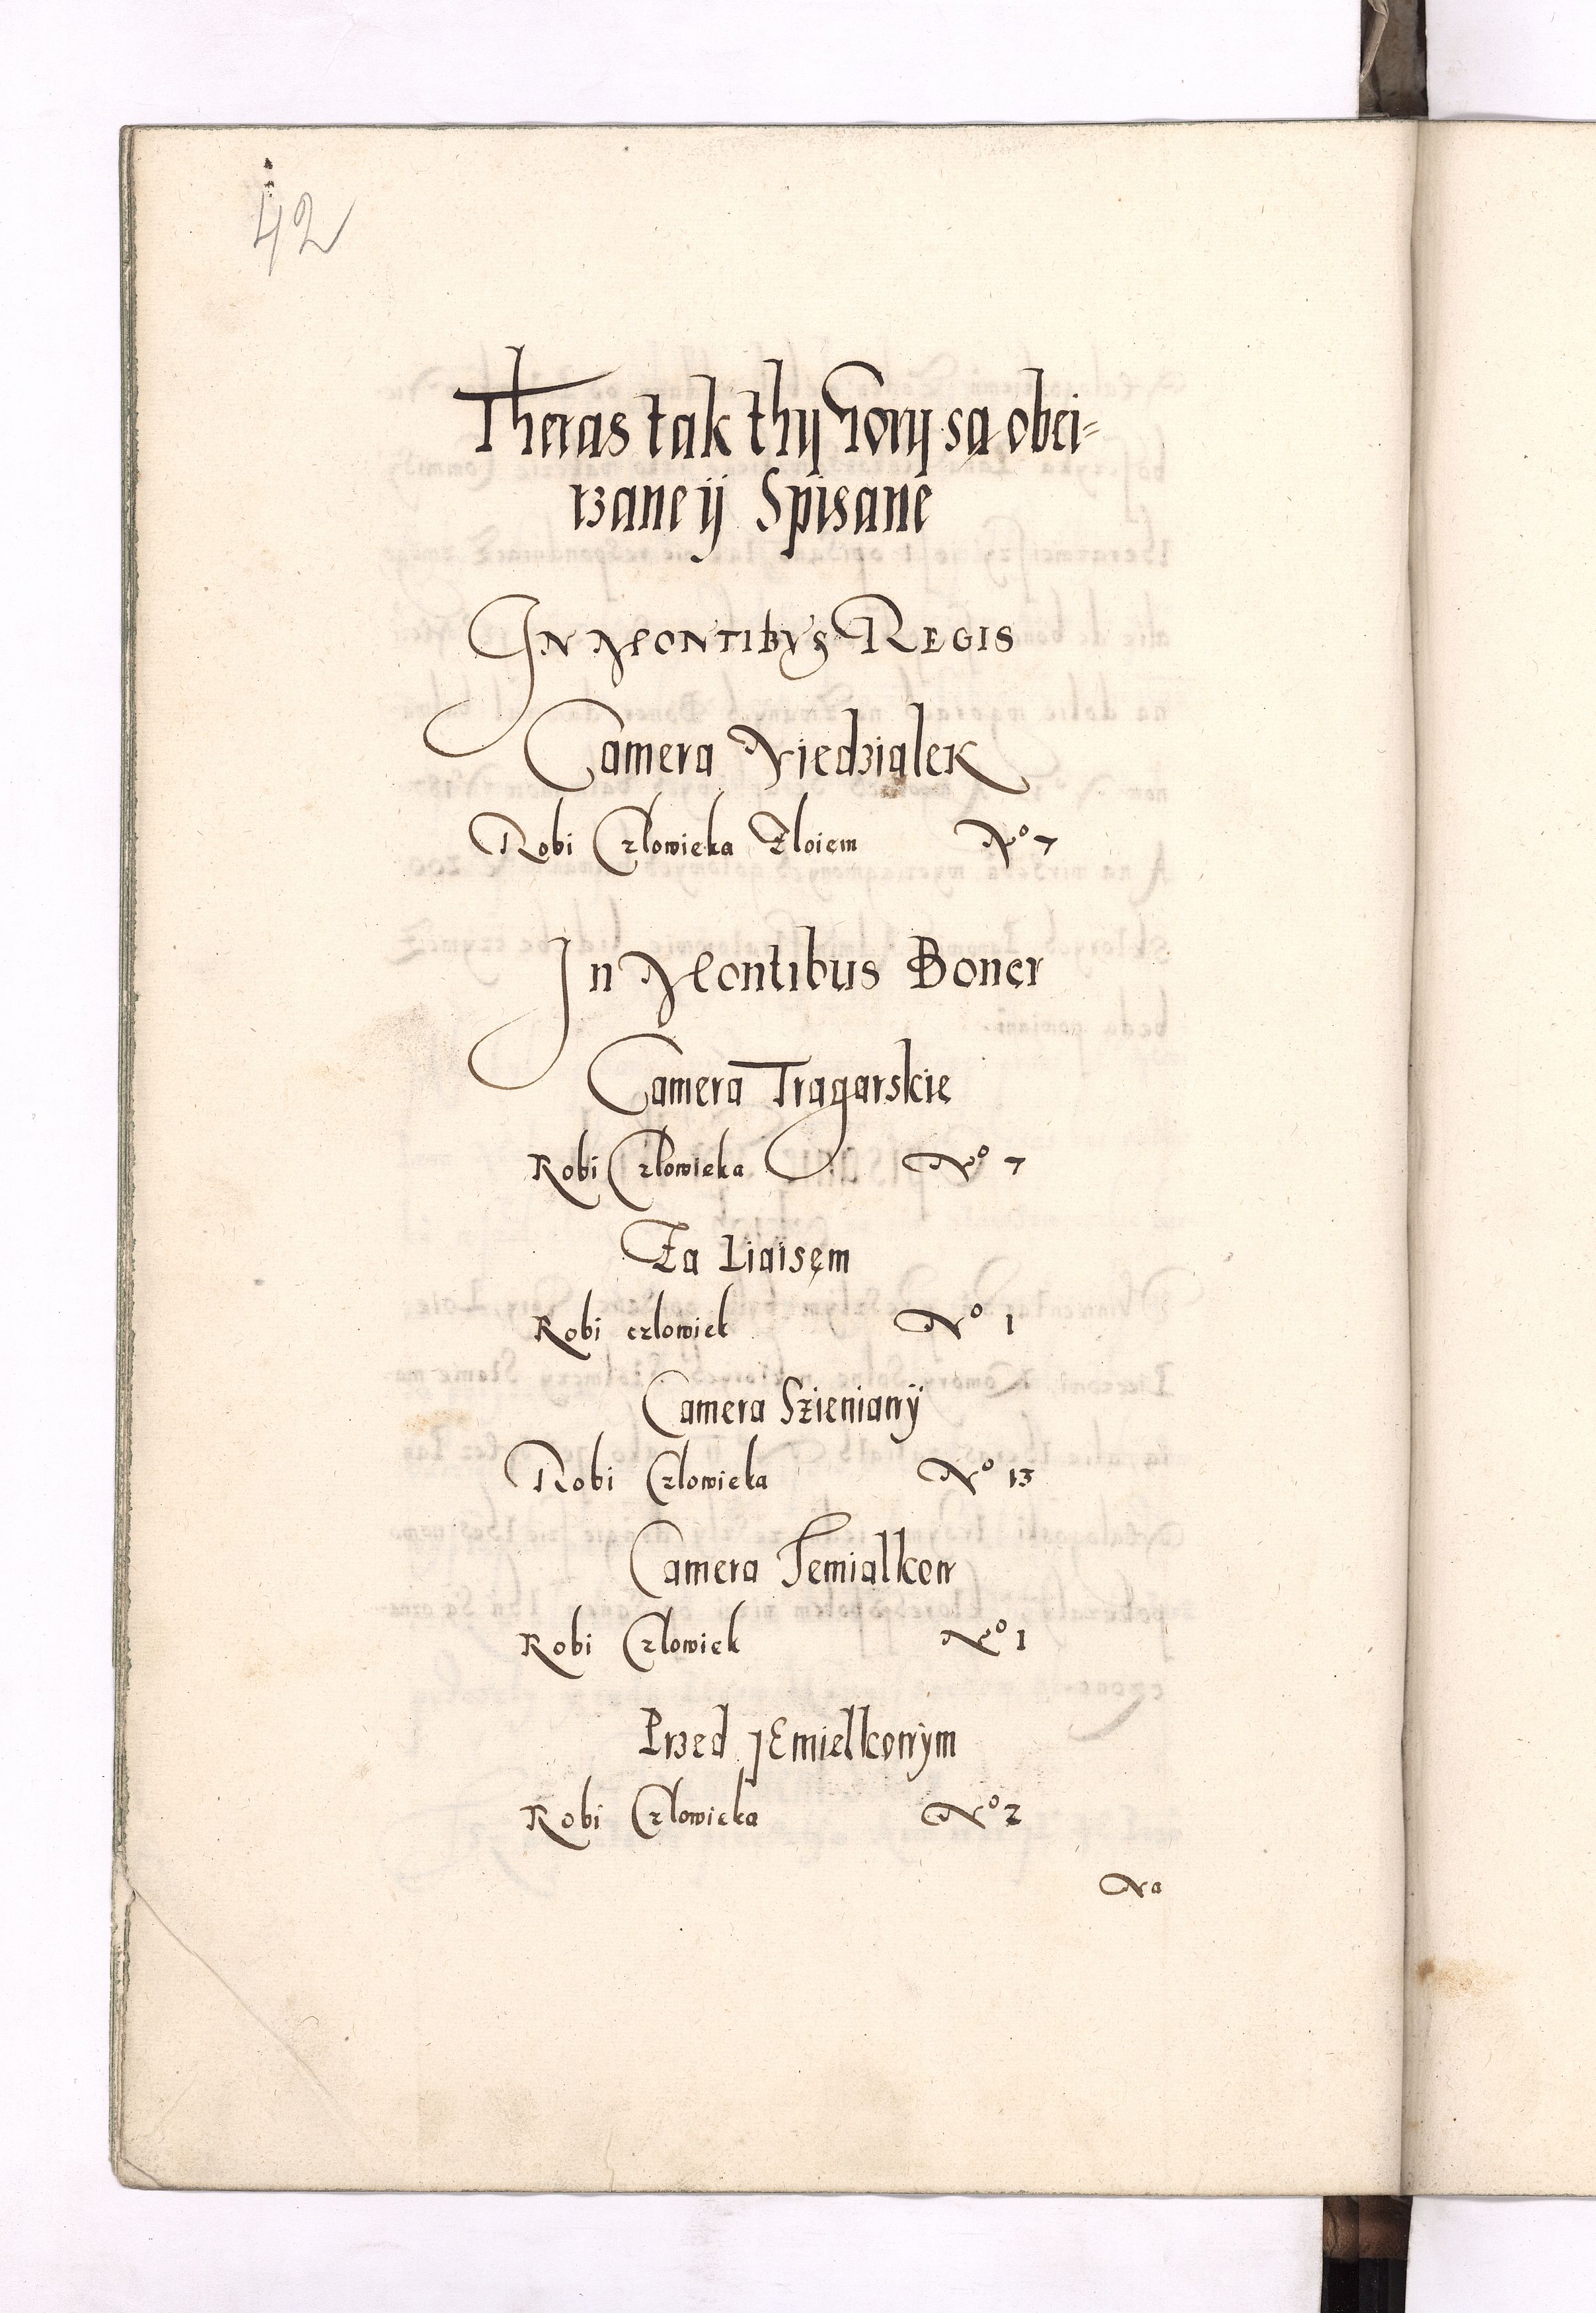 42
Theras tak thÿ Gorÿ są obei=
rzane ÿ Spisane
In Montibus Regis
Camera Niedzialek
Robi Człowieka Zloiem No 7
In Montibus Boner
Camera Tragarskie
Robi Człowieka No 7
Za Liaisem
Robi człowiek No 1
Camera Szienianÿ
Robi Człowieka No 13
Camera Jemialkow
Robi Człowiek No 1
Przed jEmielkowÿm
Robi Człowieka No 2
Na